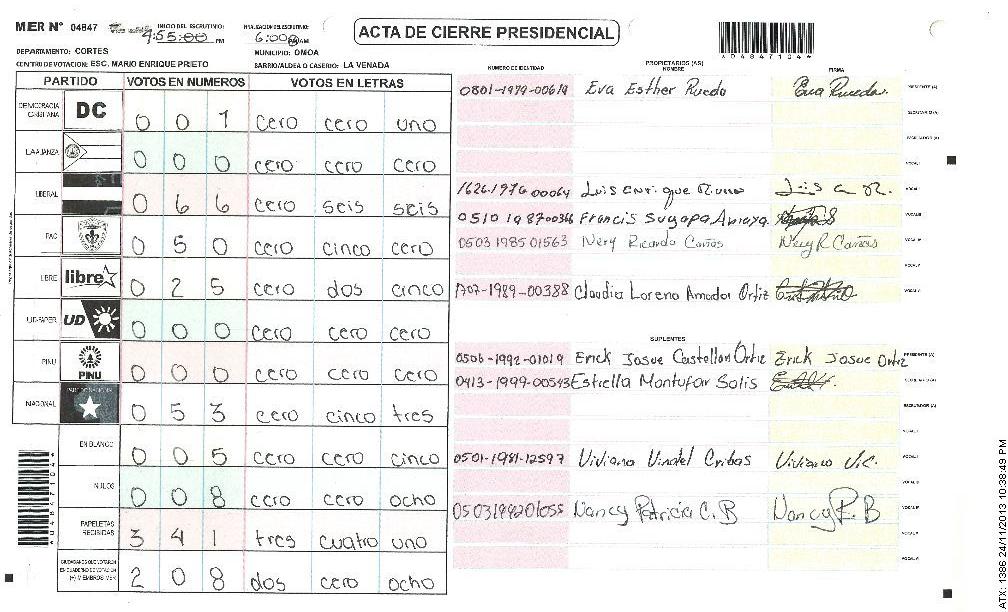 MER N° 04847 INICIO DEL ESCRUTINIO: 4:55:00 PM FINALIZACION DEL ESCRUTINIO: 6:00 AM
ACTA DE CIERRE PRESIDENCIAL
*048471044*
DEPARTAMENTO: CORTES MUNICIPIO: OMOA
CENTRO DE VOTACION: ESC. MARIO ENRIQUE PRIETO BARRIO/ALDEA O CASERIO: LA VENADA
PARTIDO VOTOS EN NUMEROS VOTOS EN LETRAS
DEMOCRACIA CRISTIANA DC 0 0 1 cero cero uno
LA ALIANZA 0 0 0 cero cero cero
LIBERAL 0 6 6 cero seis seis
PAC 0 5 0 cero cinco cero
LIBRE libre 0 2 5 cero dos cinco
UD-FAPER UD 0 0 0 cero cero cero
PINU PINU 0 0 0 cero cero cero
NACIONAL 0 5 3 cero cinco tres
EN BLANCO 0 0 5 cero cero cinco
NULOS 0 0 8 cero cero ocho
PAPELETAS RECIBIDAS 3 4 1 tres cuatro uno
CIUDADANOS QUE VOTARON EN CUADERNO DE VOTACION (+) MIEMBROS MER 2 0 8 dos cero ocho
NUMERO DE IDENTIDAD PROPIETARIOS (AS) NOMBRE FIRMA
0801-1979-00619 Eva Esther Rueda Eva Rueda. PRESIDENTE (A)
SECRETARIO (A)
ESCRUTADOR (A)
VOCAL I
1626-1976 00064 Luis Enrique Luis VOCAL II
0510 198700366 Francis Suyapa Amaya VOCAL III
0503 1985 01563 Nery Ricardo Cañas Nery R Cañas VOCAL IV
1707-1989-00388 Claudia Lorena Amador Ortiz
SUPLENTES
0506-1992-01019 Erick Josue Castellon Ortiz Erick Josue Ortiz PRESIDENTE (A)
0413-1999-00543 Estrella Montufar Solis SECRETARIO (A)
ESCRUTADOR (A)
0501-1981-12597 Viviana Viviana V.C. VOCAL I
VOCAL II
0503199201055 Nancy Patricia C. B Nancy P. B VOCAL III
VOCAL IV
*048471044*
ATX: 1386 24/11/2013 10:38:49 PM